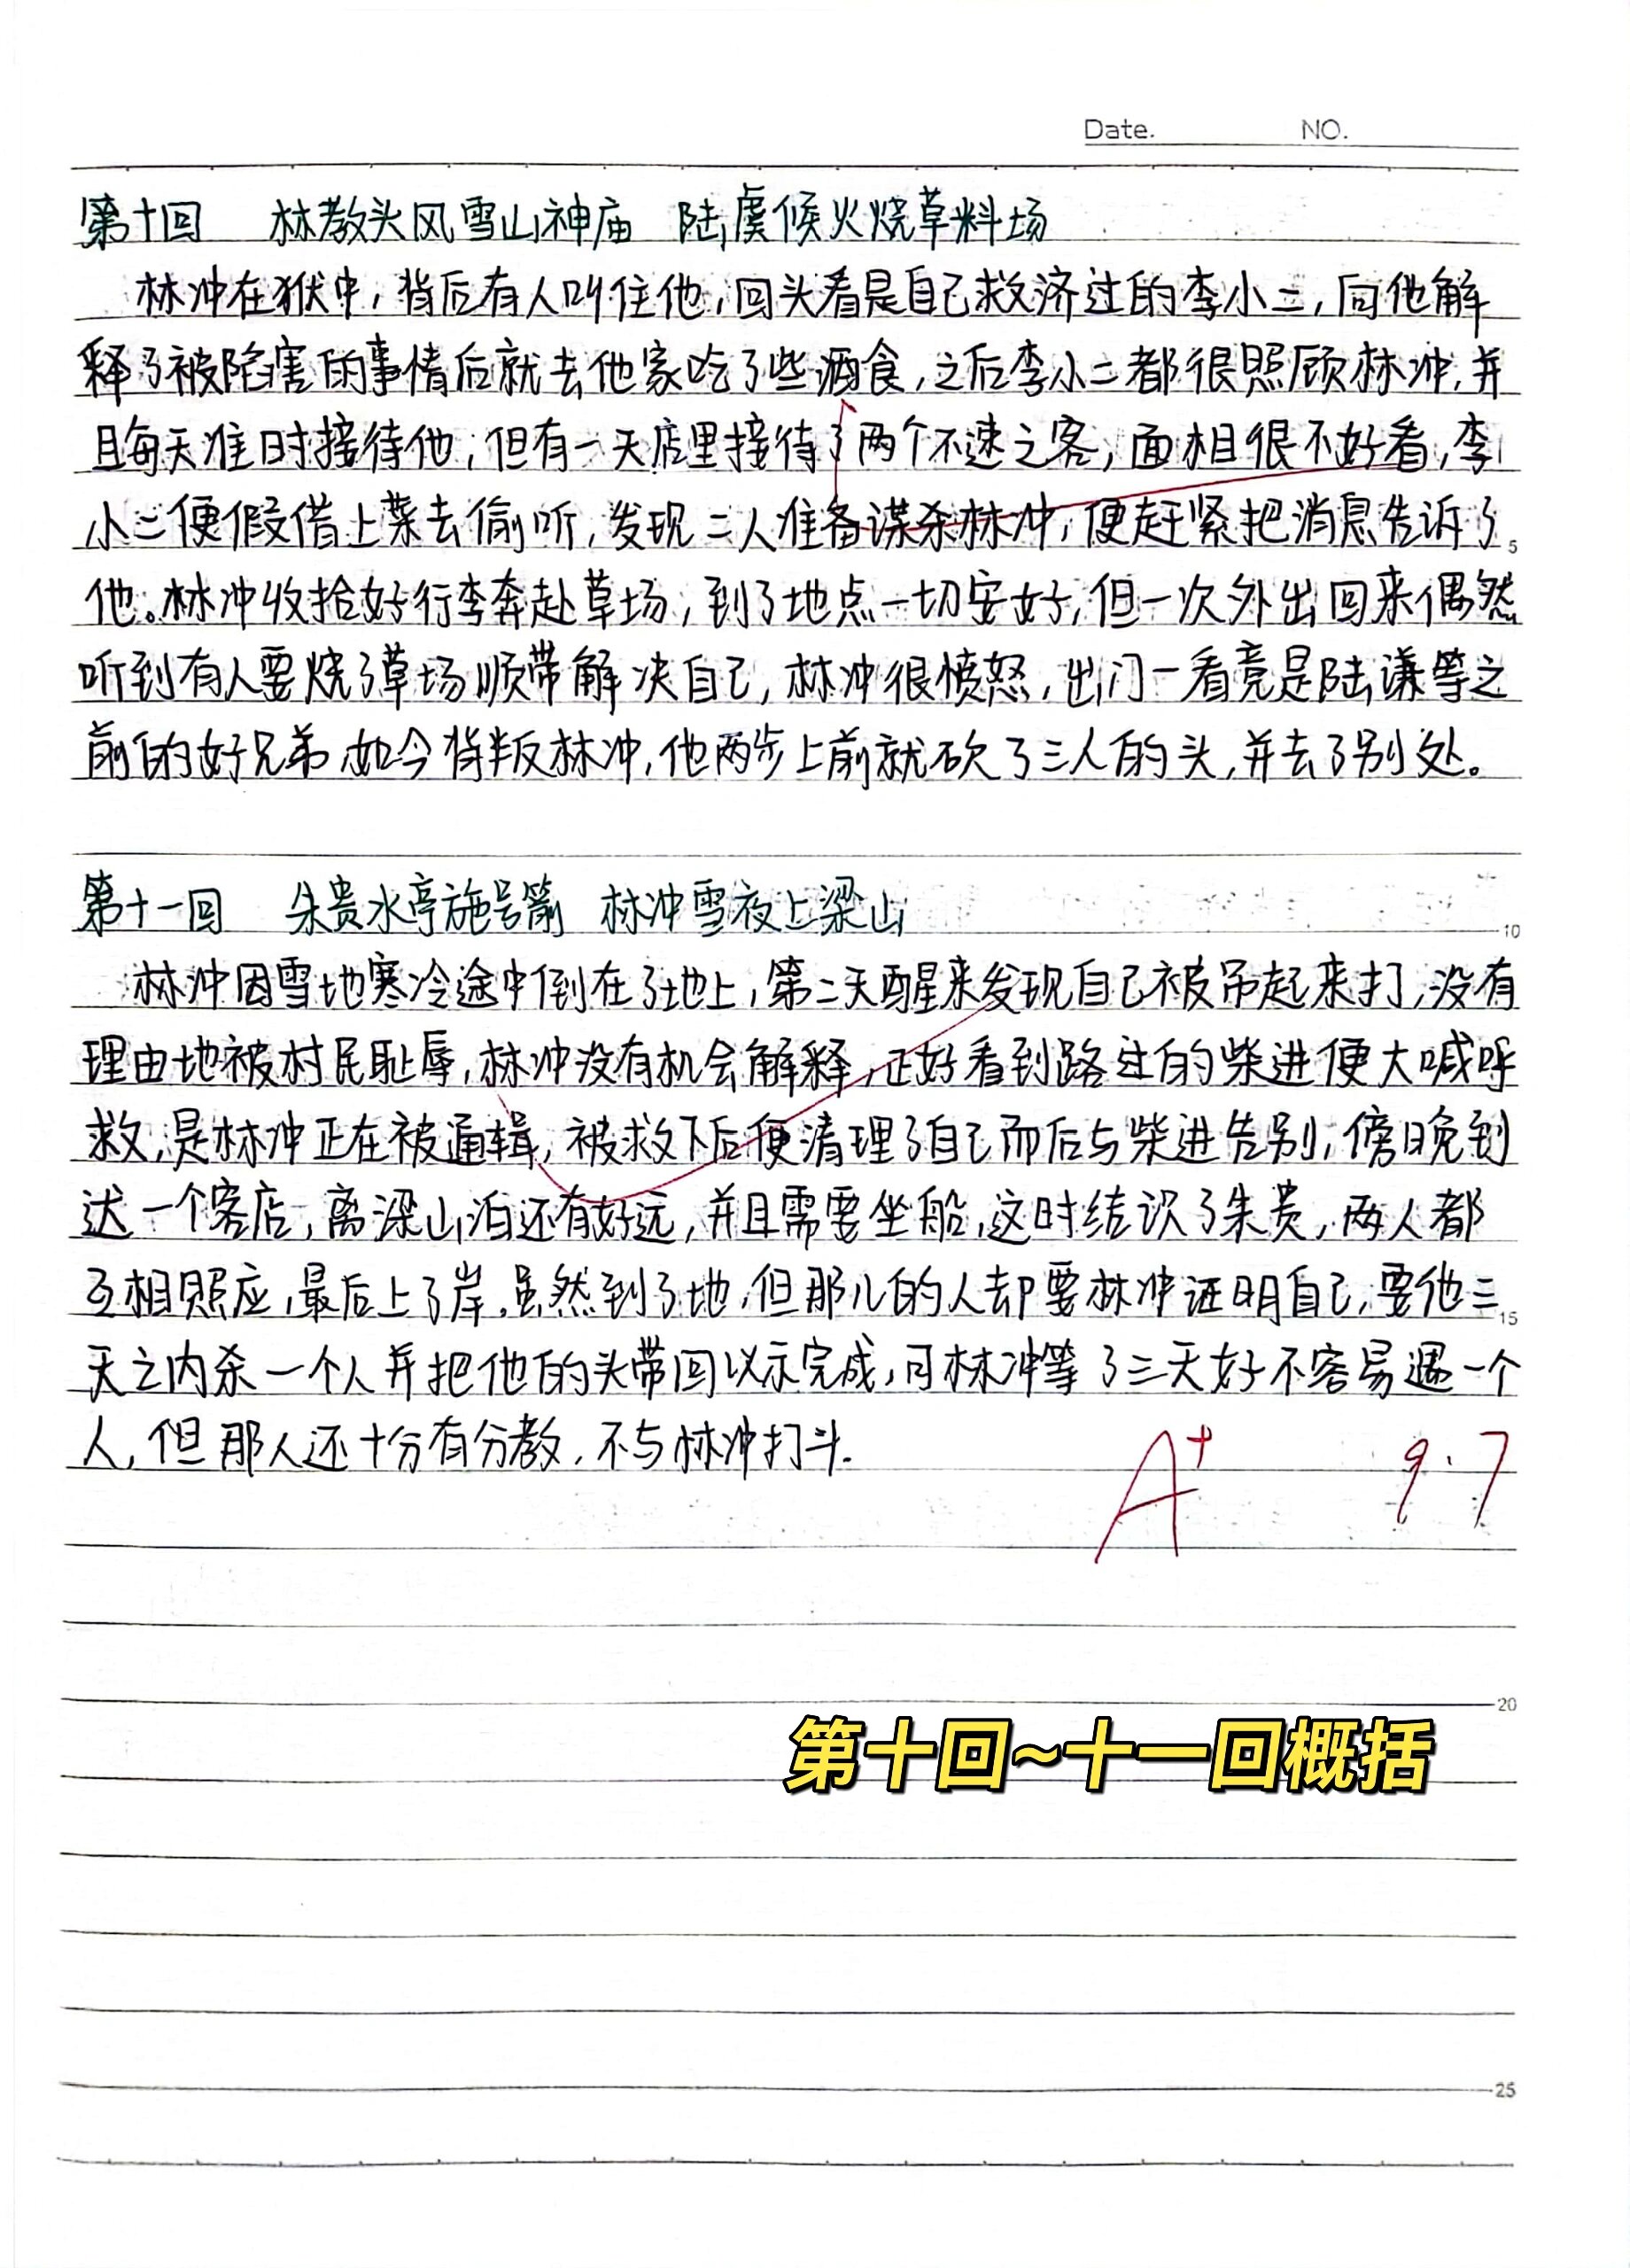 Date. NO.
第十回 林教头风雪山神庙 陆虞候火烧草料场
林冲在狱中,背后有人叫住他,回头看是自己救济过的李小二,向他解
释了被陷害的事情后就去他家吃了些酒食,之后李小二都很照顾林冲,并
且每天准时接待他,但有一天店里接待了两个不速之客,面相很不好看,李
小二便假借上菜去偷听,发现二人准备谋杀林冲,便赶紧把消息告诉了
5
他。林冲收拾好行李奔赴草场,到了地点一切安好,但一次外出回来偶然
听到有人要烧了草场顺带解决自己,林冲很愤怒,出门一看竟是陆谦等之
前的好兄弟如今背叛林冲,他两步上前就砍了三人的头,并去了别处。
第十一回 朱贵水亭施号箭 林冲雪夜上梁山
10
林冲因雪地寒冷途中倒在了地上,第二天醒来发现自己被吊起来打,没有
理由地被村民耻辱,林冲没有机会解释,正好看到路过的柴进便大喊呼
救,是林冲正在被通缉,被救下后便清理了自己而后与柴进告别,傍晚到
达一个客店,离梁山泊还有好远,并且需要坐船,这时结识了朱贵,两人都
互相照应,最后上了岸。虽然到了地,但那儿的人却要林冲证明自己,要他三
15
天之内杀一个人并把他的头带回以示完成,可林冲等了三天好不容易遇一个
人,但那人还十分有分教,不与林冲打斗.
A+ 9.7
20
第十回~十一回概括
25